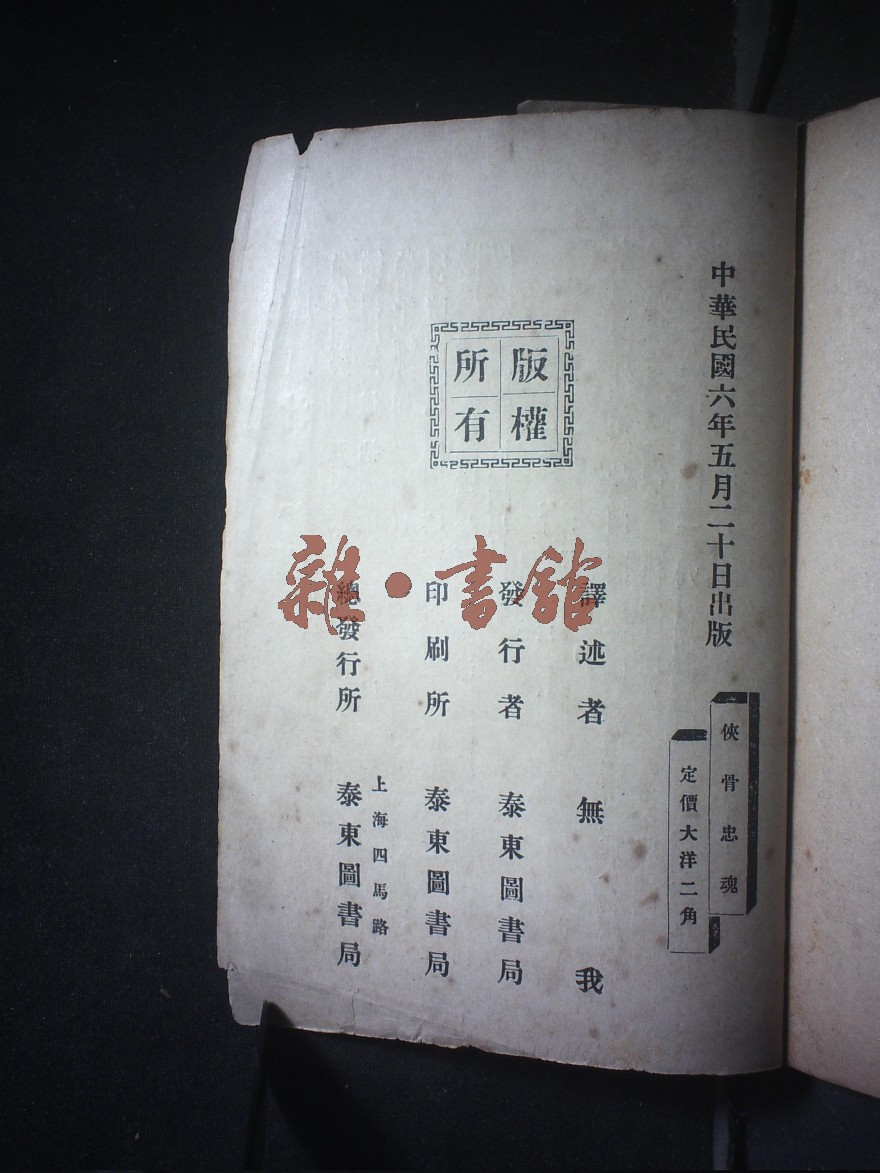 中華民國六年五月二十日出版
俠骨忠魂
定價大洋二角
版權
所有
譯述者 無我
發行者 泰東圖書局
印刷所 泰東圖書局
上海四馬路
總發行所 泰東圖書局
雜·書館